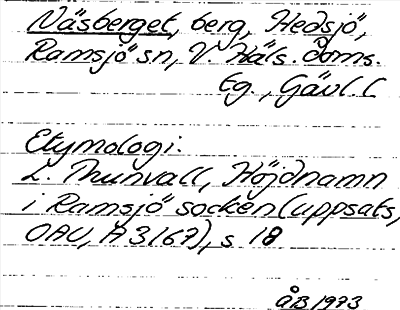 Näsberget, berg, Hedsjö,
Ramsjö sn, V. Häls. doms.
Eg., Gävl. l
Etymologi:
L. Thunvall, Höjdnamn
i Ramsjö socken (uppsats,
OAU, A 3167), s. 18
ÅB 1973